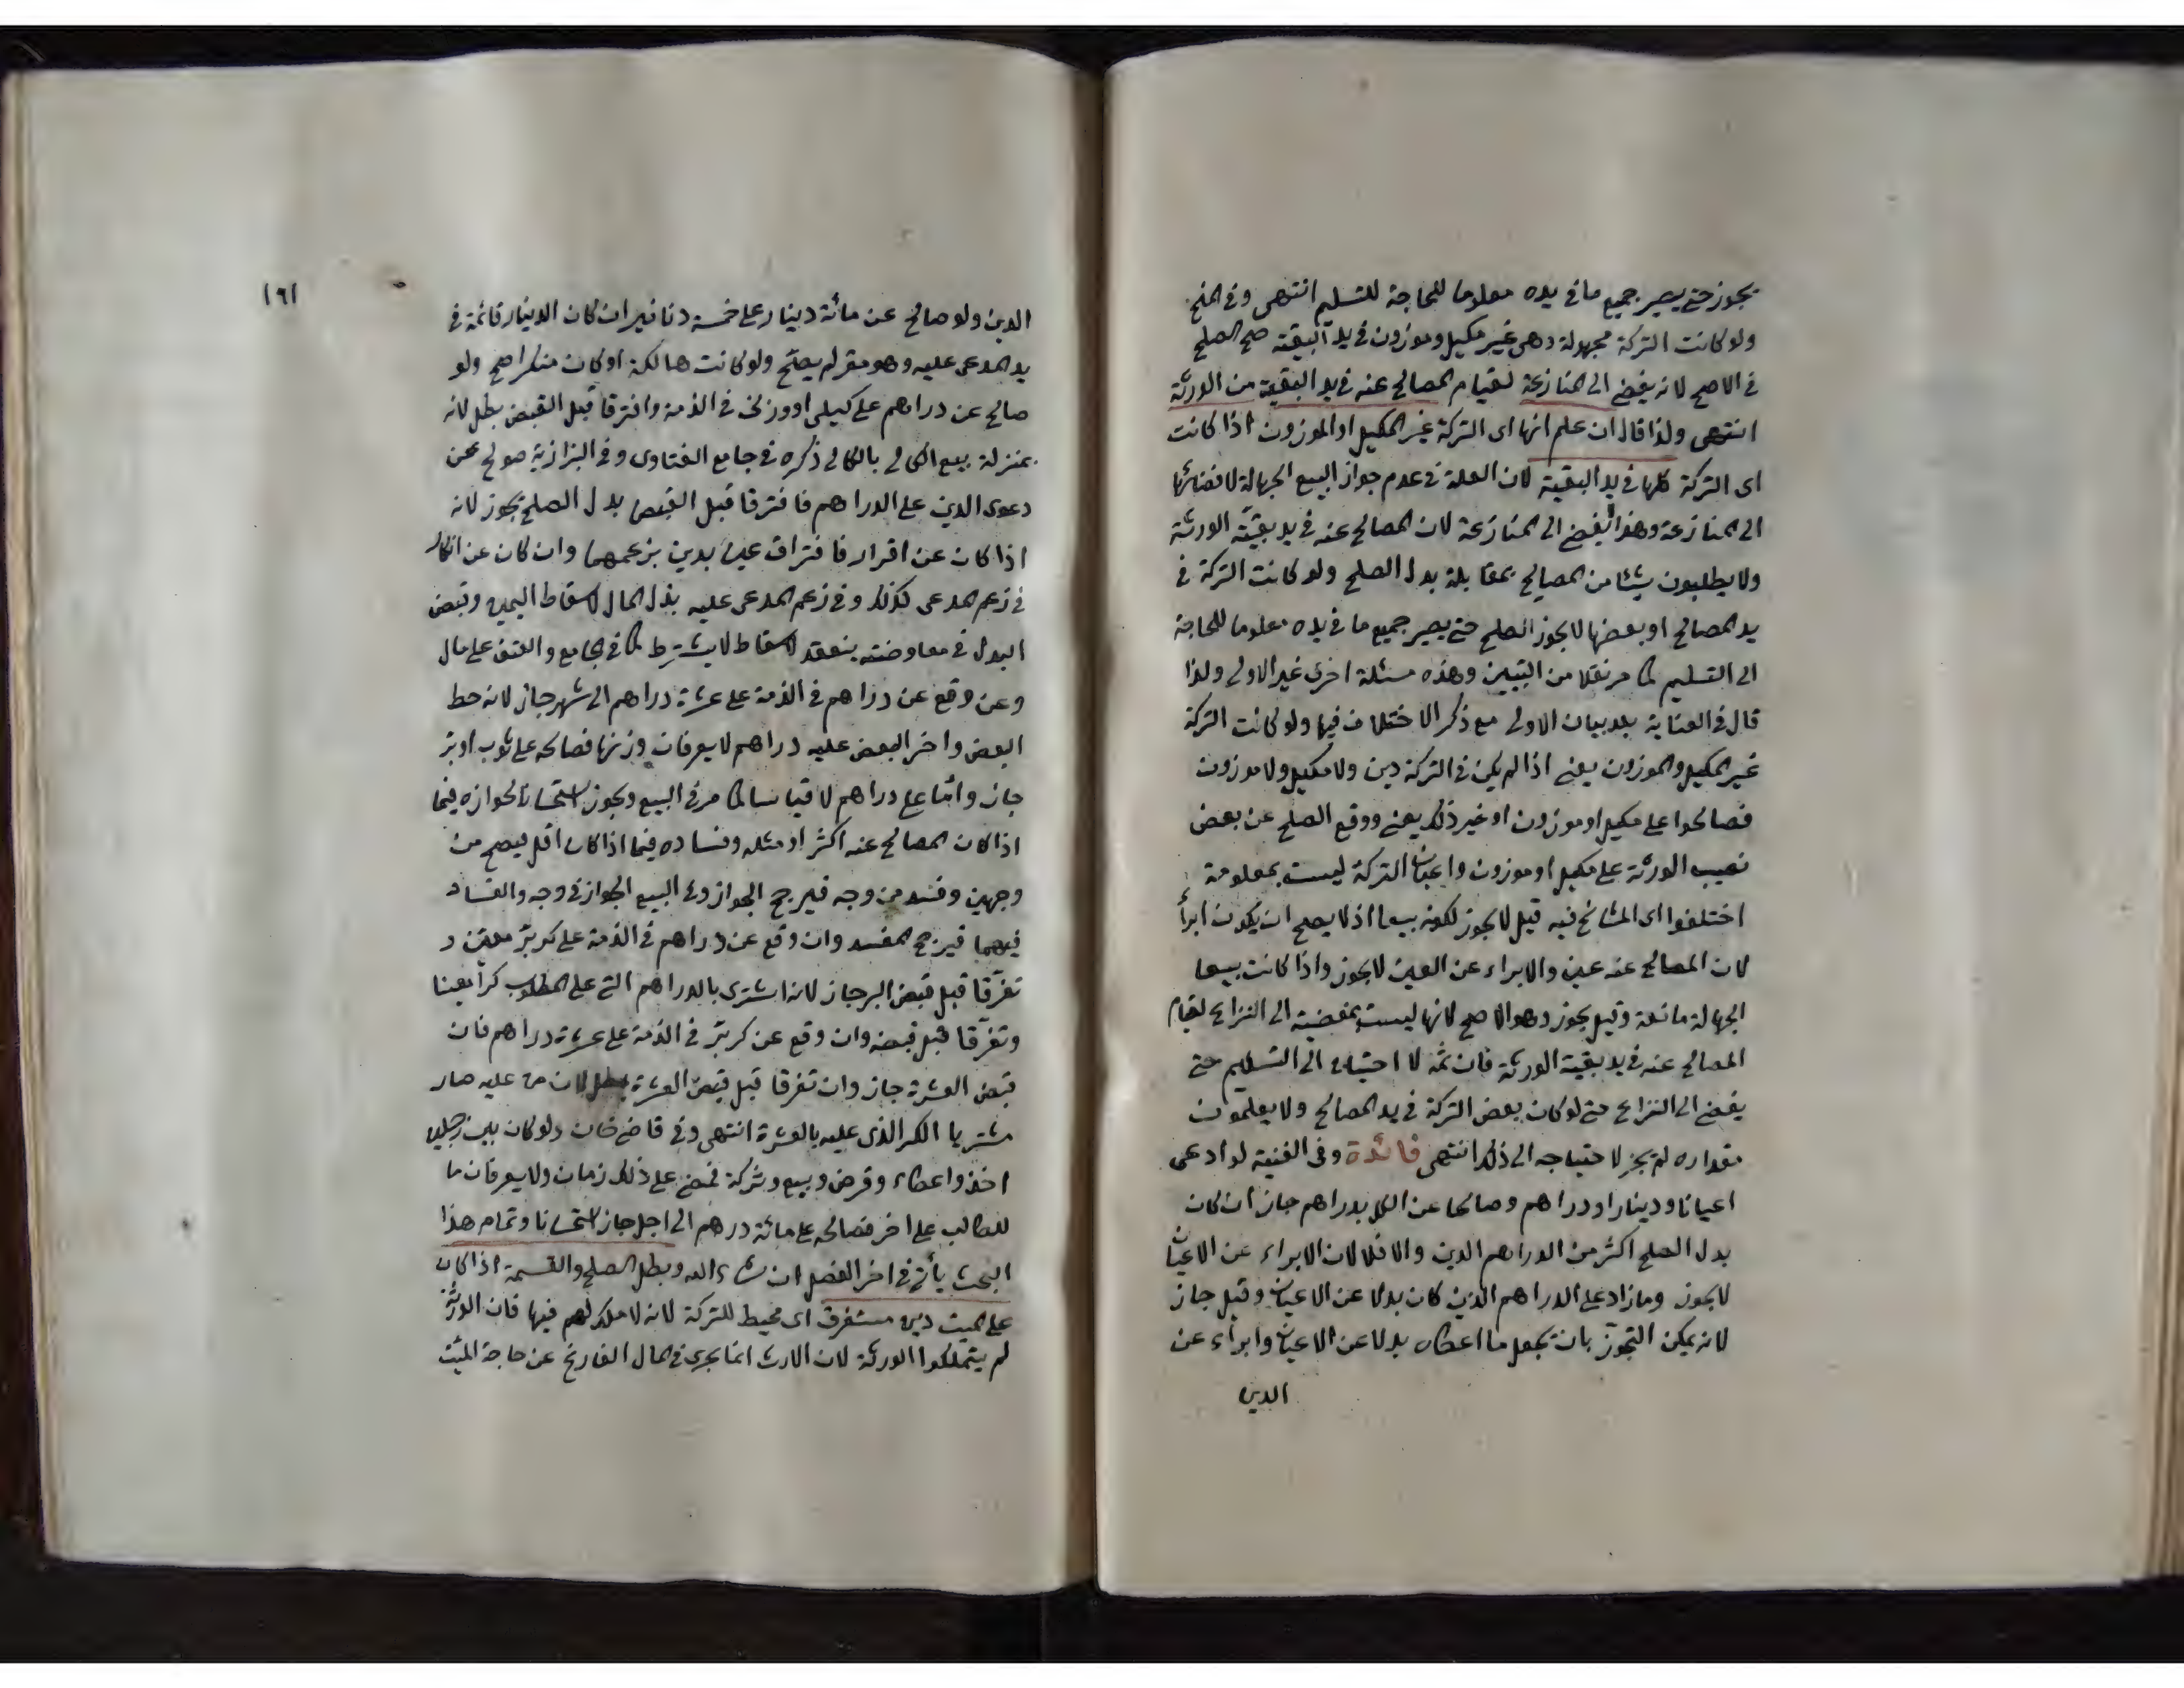 يجوز حتى يصير جميع ما في يده معلوما للحاجة للتسليم انتهى وفي المنح
ولو كانت التركة مجهولة وهى غير مكيل وموزون في يد البقية صح الصلح
في الاصح لانه يفضى الى المنازعة لقيام المصالح عنه في يد البقية من الورثة
انتهى ولذا قال ان علم انها اى التركة غير المكيل او الموزون اذا كانت
اى التركة كلها في يد البقية لان العلة في عدم جواز البيع الجهالة لافضائها
الى المنازعة وهذا يفضى الى المنازعة لان المصالح عنه في يد بقية الورثة
ولا يطلبون شيئا من المصالح بمقابلة بدل الصلح ولو كانت التركة في
يد المصالح او بعضها لا يجوز الصلح حتى يصير جميع ما في يده معلوما للحاجة
الى التسليم كما مر نقلا من التبيين وهذه مسئلة اخرى غير الاولى ولذا
قال في العناية بعد بيان الاولى مع ذكر الاختلاف فيها ولو كانت التركة
غير المكيل والموزون يعنى اذا لم يكن في التركة دين ولا مكيل ولا موزون
فصالحوا على مكيل او موزون او غير ذلك يعنى ووقع الصلح عن بعض
نصيب الورثة على مكيل او موزون واعيان التركة ليست بمعلومة
اختلفوا اى المشائخ فيه قيل لا يجوز لكونه بيعا اذ لا يصح ان يكون ابرأ
لان المصالح عنه عين والابراء عن العين لا يجوز واذا كانت بيعا
الجهالة مانعة وقيل يجوز وهو الاصح لانها ليست بمفضية الى النزاع لقيام
المصالح عنه في يد بقية الورثة فان ثمه لا احتياج الى التسليم حتى
يفضى الى النزاع حتى لو كان بعض التركة في يد المصالح ولا يعلمون
مقداره لم يجز لاحتياجه الى ذلك انتهى فائدة وفى القنية لو ادعى
اعيانا ودينارا ودراهم وصالحا عن الكل بدراهم جاز ان كان
بدل الصلح اكثر من الدراهم الدين والا فلا لان الابراء عن الاعيان
لا يجوز وما زاد على الدراهم الدين كان بدلا عن الاعيان وقيل جاز
لانه يمكن التجوز بان يجعل ما اعطاه بدلا عن الاعيان وابراء عن
الدين
١٦١
الدين ولو صالح عن مائة دينار على خمسة دنانير ان كان الدينار قائمة في
يد المدعى عليه وهو مقر لم يصح ولو كانت هالكة او كان منكرا صح ولو
صالح عن دراهم على كيلى او وزنى في الذمة وافترقا قبل القبض بطل لانه
بمنزلة بيع الكالى بالكالى ذكره في جامع الفتاوى وفى البزازية صولح عن
دعوى الدين على الدراهم فافترقا قبل القبض بدل الصلح يجوز لانه
اذا كان عن اقرار فافتراق عين بدين بزعمهما وان كان عن انكار
في زعم المدعى كذلك وفى زعم المدعى عليه بذل المال لاسقاط اليمين وقبض
البدل في معاوضته ينعقد لاسقاط لا يشترط كما في الجامع والعتق على مال
وعن وقع عن دراهم في الذمة على عشرة دراهم الى شهر جاز لانه حط
البعض واخر البعض عليه دراهم لا يعرفان وزنها فصالحه على ثوب او بر
جاز واما على دراهم لا قياسا لما مر في البيع ويجوز استحسانا لجوازه فيما
اذا كان المصالح عنه اكثر او مثله وفساده فيما اذا كان اقل فيصح من
وجهين وفسد من وجه فيرجح الجواز وفى البيع الجواز في وجه والفساد
فيهما فيرجح المفسد وان وقع عن دراهم في الذمة على كر بر معين و
تفرقا قبل قبض البر جاز لانه اشترى بالدراهم التى على المطلوب كرا بعينا
وتفرقا قبل قبضه وان وقع عن كر بر في الذمة على عشرة دراهم فان
قبض العشرة جاز وان تفرقا قبل قبض العشرة بطل لان من عليه صار
مشتريا الكر الذى عليه بالعشرة انتهى وفى قاضى خان ولو كان بين رجلين
اخذ واعطاء وقرض وبيع وشركة فمضى على ذلك زمان ولا يعرفان ما
للطالب على اخر فصالحه على مائة درهم الى اجل جاز استحسانا وتمام هذا
البحث يأتى في اخر الفصل ان شاء الله وبطل الصلح والقسمة اذا كان
على الميت دين مستغرق اى محيط للتركة لانه لا ملك لهم فيها فان الورثة
لم يتملكوا الورثة لان الارث انما يجرى في المال الفارغ عن حاجة الميت